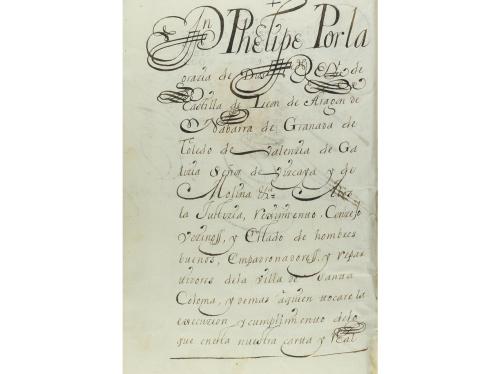 Dn Phelipe Por la
gracia de Dios Rey de
Castilla de Leon de Aragon de
Nabarra de Granada de
Toledo de Valenzia de Ga
lizia Señor de Vizcaya y de
Molina &a
la Justizia, Reximiento, Conzejo
Vezinos, y Estado de hombres
buenos, Empadronadores, y repar
tidores dela Villa de Santa
Coloma, y demas aquien tocare la
execuzion y cumplimiento delo
que enesta nuestra carta y Real